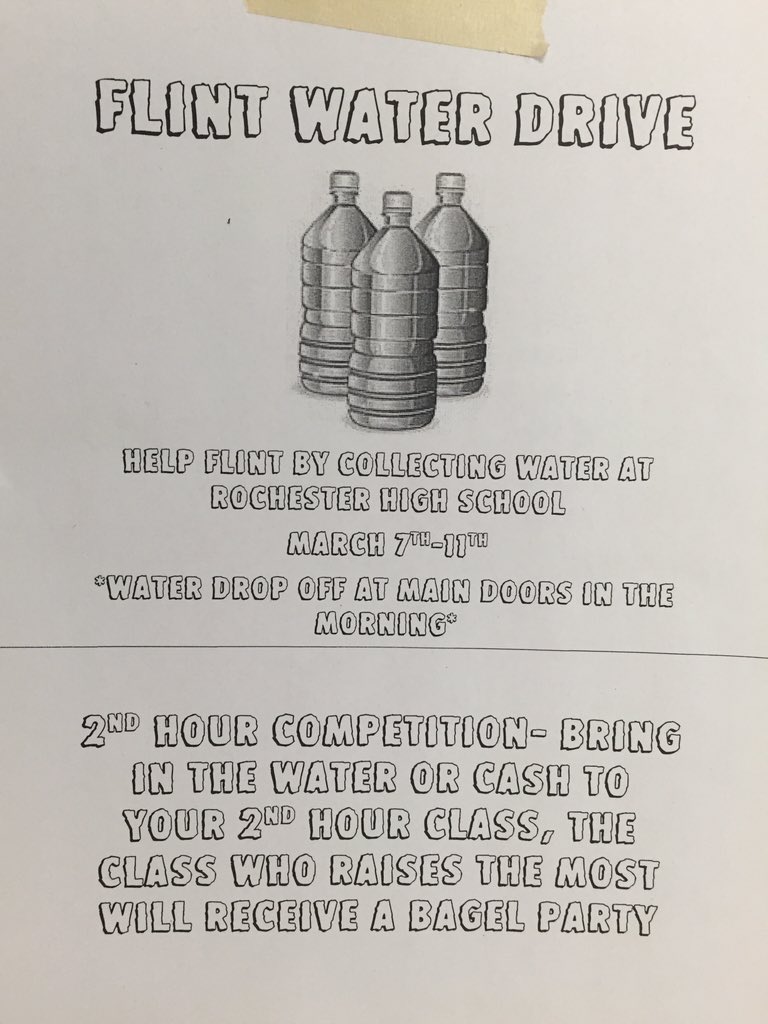 FLINT WATER DRIVE
HELP FLINT BY COLLECTING WATER AT
ROCHESTER HIGH SCHOOL
MARCH 7TH-11TH
*WATER DROP OFF AT MAIN DOORS IN THE
MORNING*
2ND HOUR COMPETITION- BRING
IN THE WATER OR CASH TO
YOUR 2ND HOUR CLASS, THE
CLASS WHO RAISES THE MOST
WILL RECEIVE A BAGEL PARTY